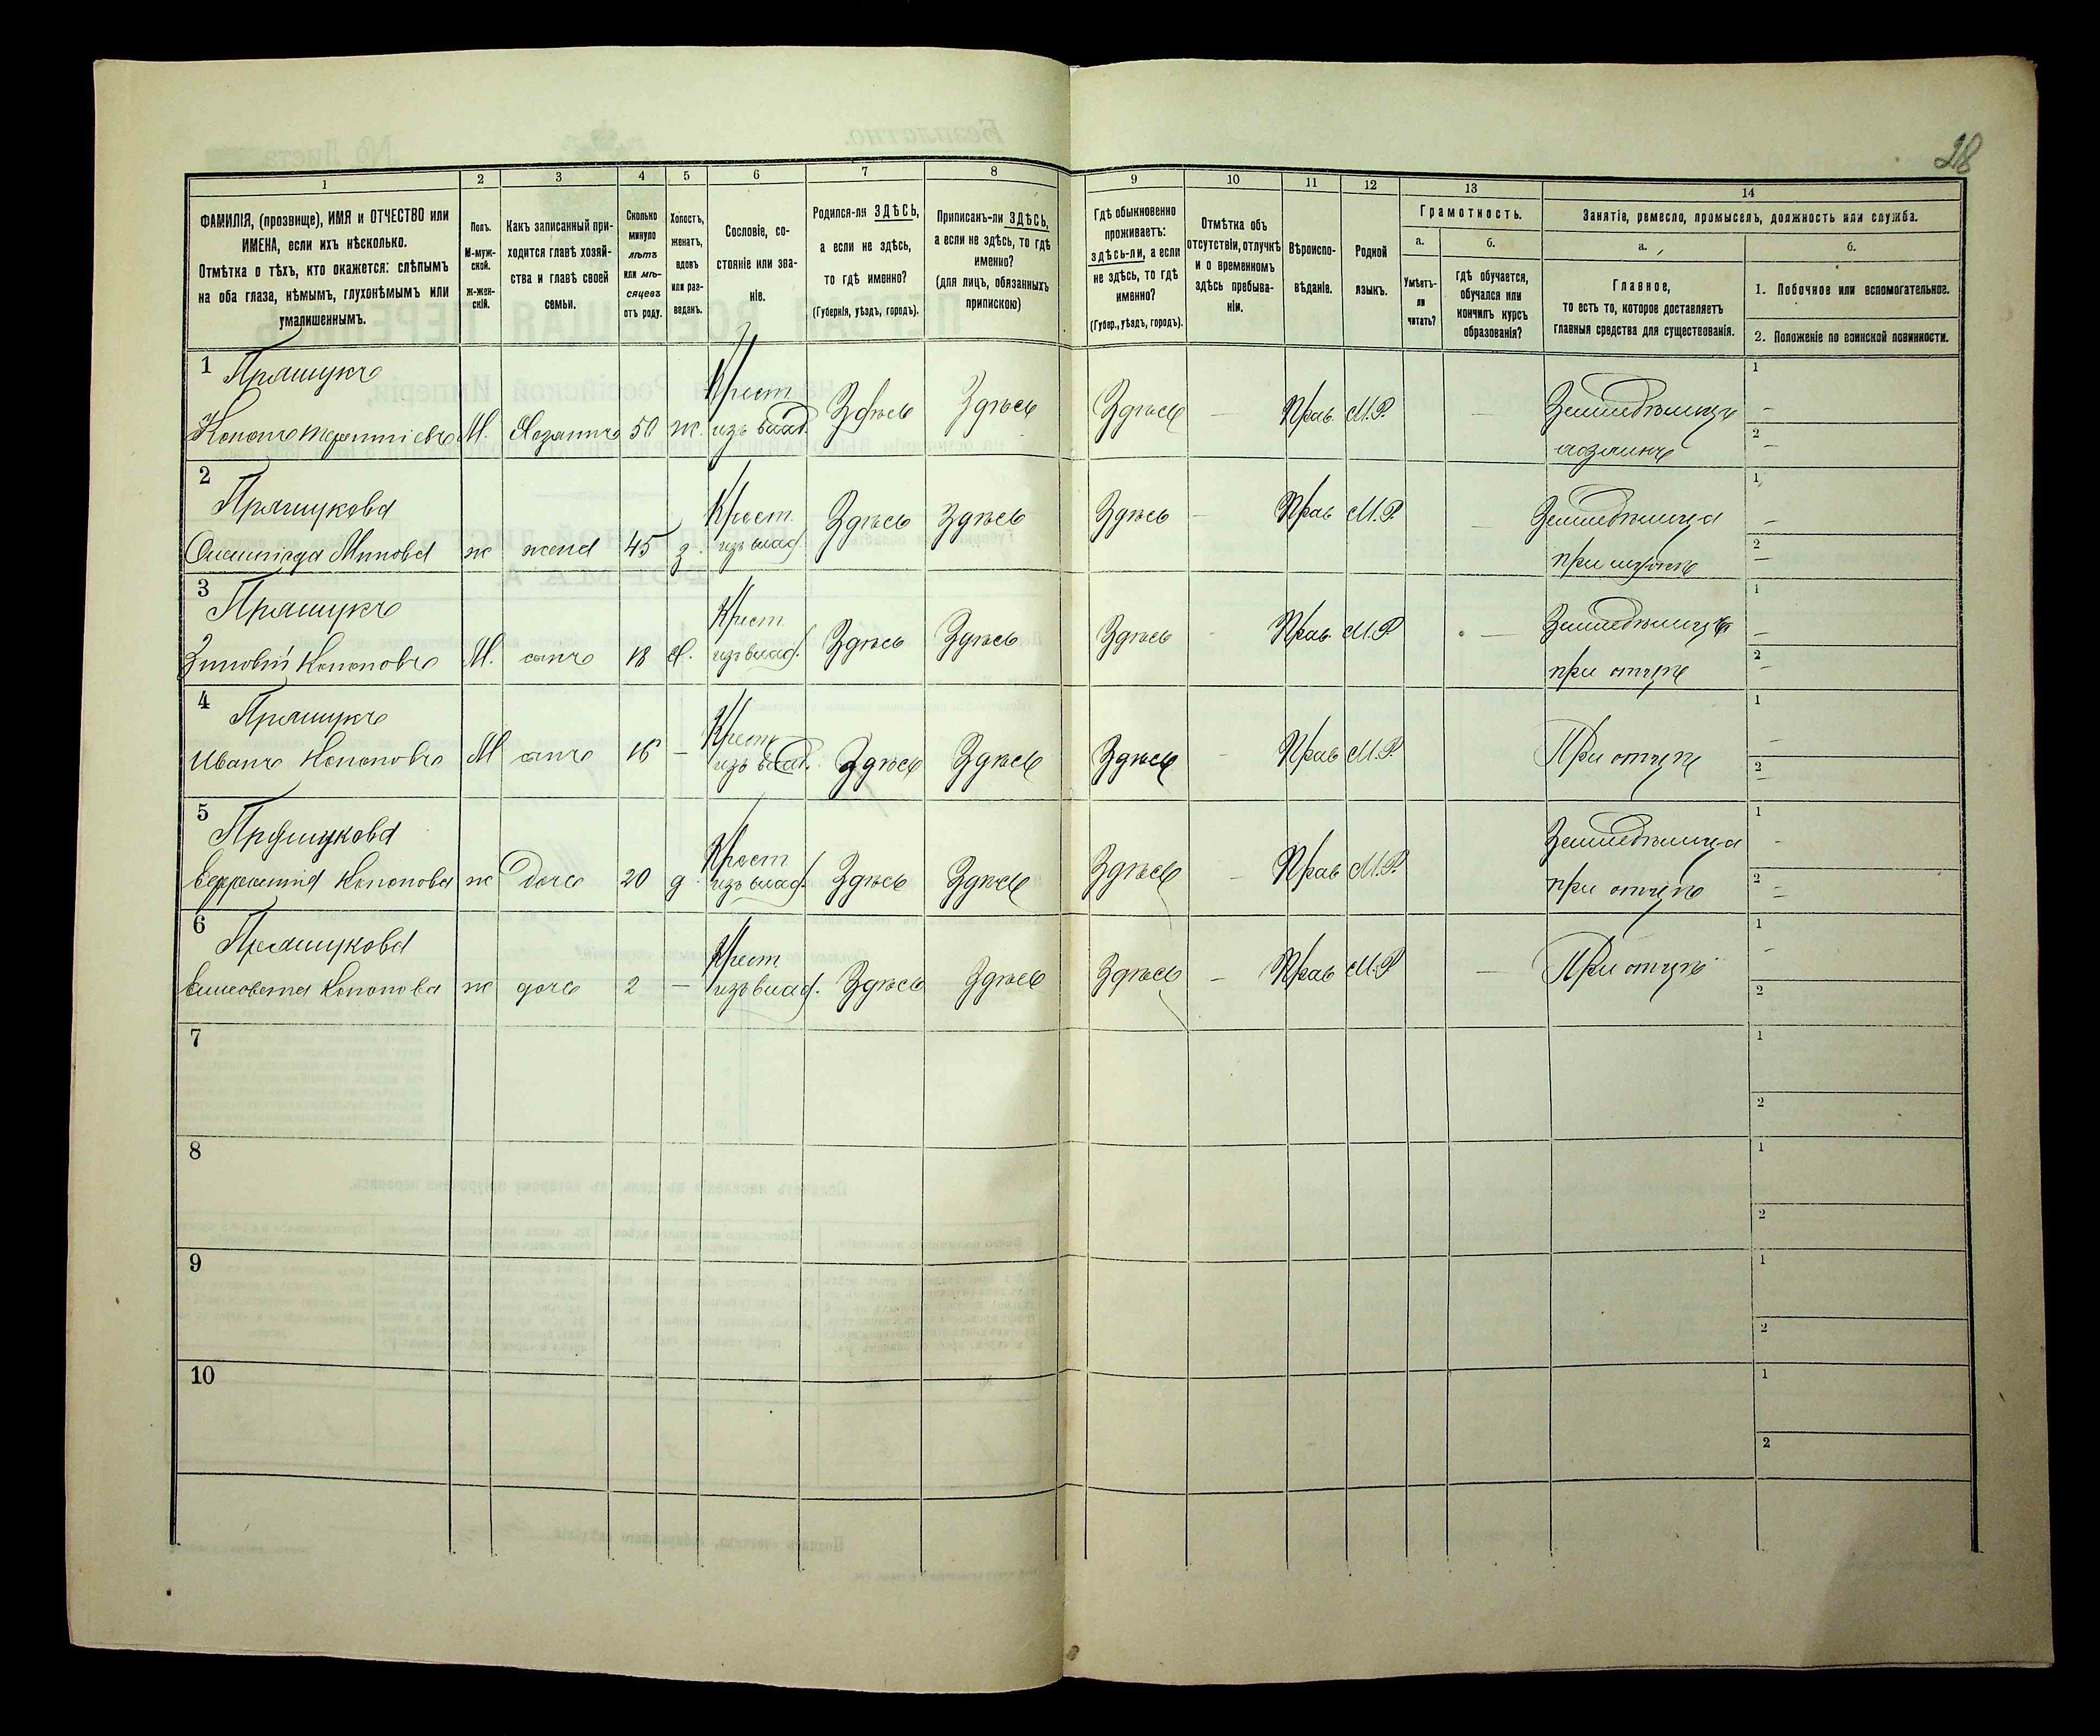 28
1 2 3 4 5 6 7 8 9 10 11 12 13 14
ФАМИЛІЯ, (прозвище), ИМЯ и ОТЧЕСТВО или
ИМЕНА, если ихъ нѣсколько.
Отмѣтка о тѣхъ, кто окажется: слѣпымъ
на оба глаза, нѣмымъ, глухонѣмымъ или
умалишеннымъ.
Полъ.
М-муж-
ской.
Ж-жен-
скій.
Какъ записанный при-
ходится главѣ хозяй-
ства и главѣ своей
семьи.
Сколько
минуло
лѣтъ
или мѣ-
сяцевъ
отъ роду.
Холостъ,
женатъ,
вдовъ
или раз-
веденъ.
Сословіе, со-
стояніе или зва-
ніе.
Родился-ли ЗДѢСЬ,
а если не здѣсь,
то гдѣ именно?
(Губернія, уѣздъ, городъ).
Приписанъ-ли ЗДѢСЬ,
а если не здѣсь, то гдѣ
именно?
(для лицъ, обязанныхъ
припискою)
Гдѣ обыкновенно
проживаетъ:
здѣсь-ли, а если
не здѣсь, то гдѣ
именно?
(Губер., уѣздъ, городъ).
Отмѣтка объ
отсутствіи, отлучкѣ
и о временномъ
здѣсь пребыва-
ніи.
Вѣроиспо-
вѣданіе.
Родной
языкъ.
Грамотность.
а.
Умѣетъ-
ли
читать?
б.
Гдѣ обучается,
обучался или
кончилъ курсъ
образованія?
Занятіе, ремесло, промыселъ, должность или служба.
а.
Главное,
то есть то, которое доставляетъ
главныя средства для существованія.
б.
1. Побочное или вспомогательное.
2. Положеніе по воинской повинности.
1 Прящукъ Крест. Земледѣлецъ 1
Кононъ Терентіевъ М. Хозяинъ 50 ж. изъ влад. Здѣсь Здѣсь Здѣсь — Прав. М.Р. — хозяинъ 2
2 Прящукова Крест. Земледѣлица 1
Минова ж жена 45 з. изъ влад. Здѣсь Здѣсь Здѣсь — Прав. М.Р. — при мужѣ 2
3 Прящукъ Крест. Земледѣлецъ 1
Зиновій Кононовъ М. сынъ 18 х. изъ влад. Здѣсь Здѣсь Здѣсь — Прав. М.Р. — при отцѣ 2
4 Прящукъ Крест. 1
Иванъ Кононовъ М сынъ 16 — изъ влад. Здѣсь Здѣсь Здѣсь — Прав. М.Р. При отцѣ 2
5 Прящукова Крест. Земледѣлица 1
Кононова ж дочь 20 д. изъ влад. Здѣсь Здѣсь Здѣсь — Прав М.Р. при отцѣ 2
6 Прящукова Крест. 1
Елисавета Кононова ж дочь 2 — изъ влад. Здѣсь Здѣсь Здѣсь — Прав М.Р. — При отцѣ 2
7 1
2
8 1
2
9 1
2
10 1
2